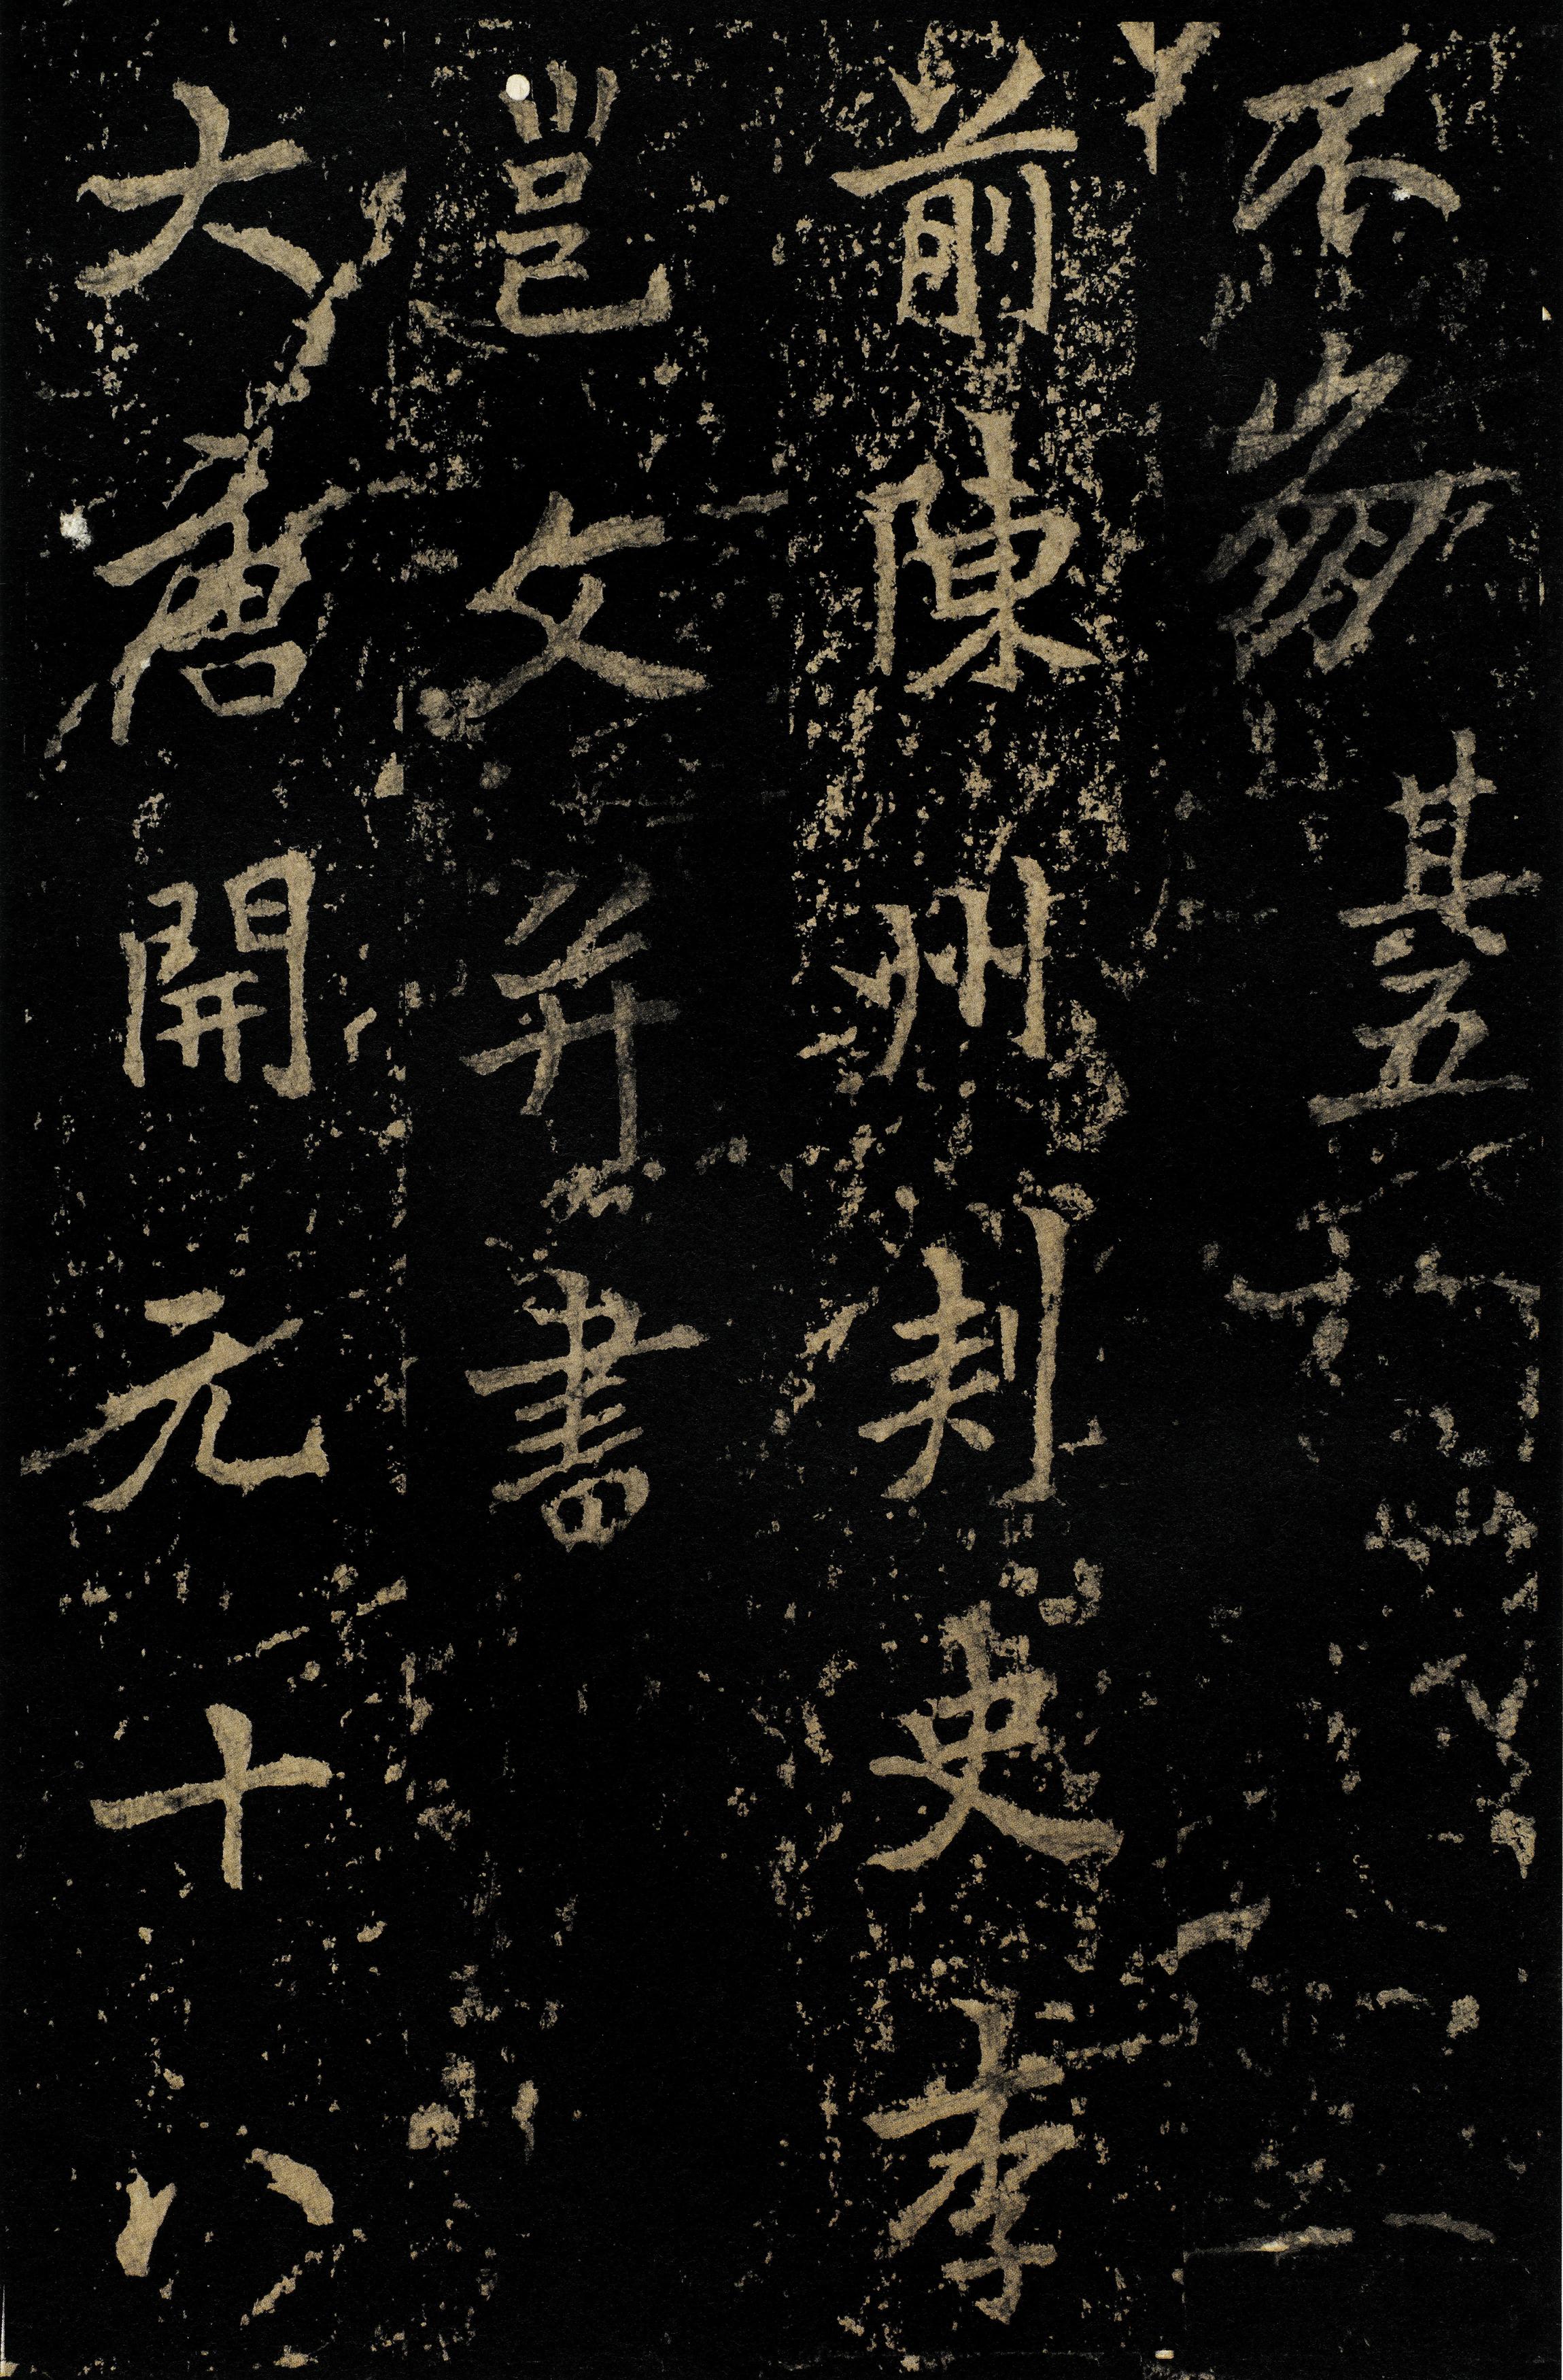 不刋其五
前陳州刺史李
邕文并書
大唐開元十八